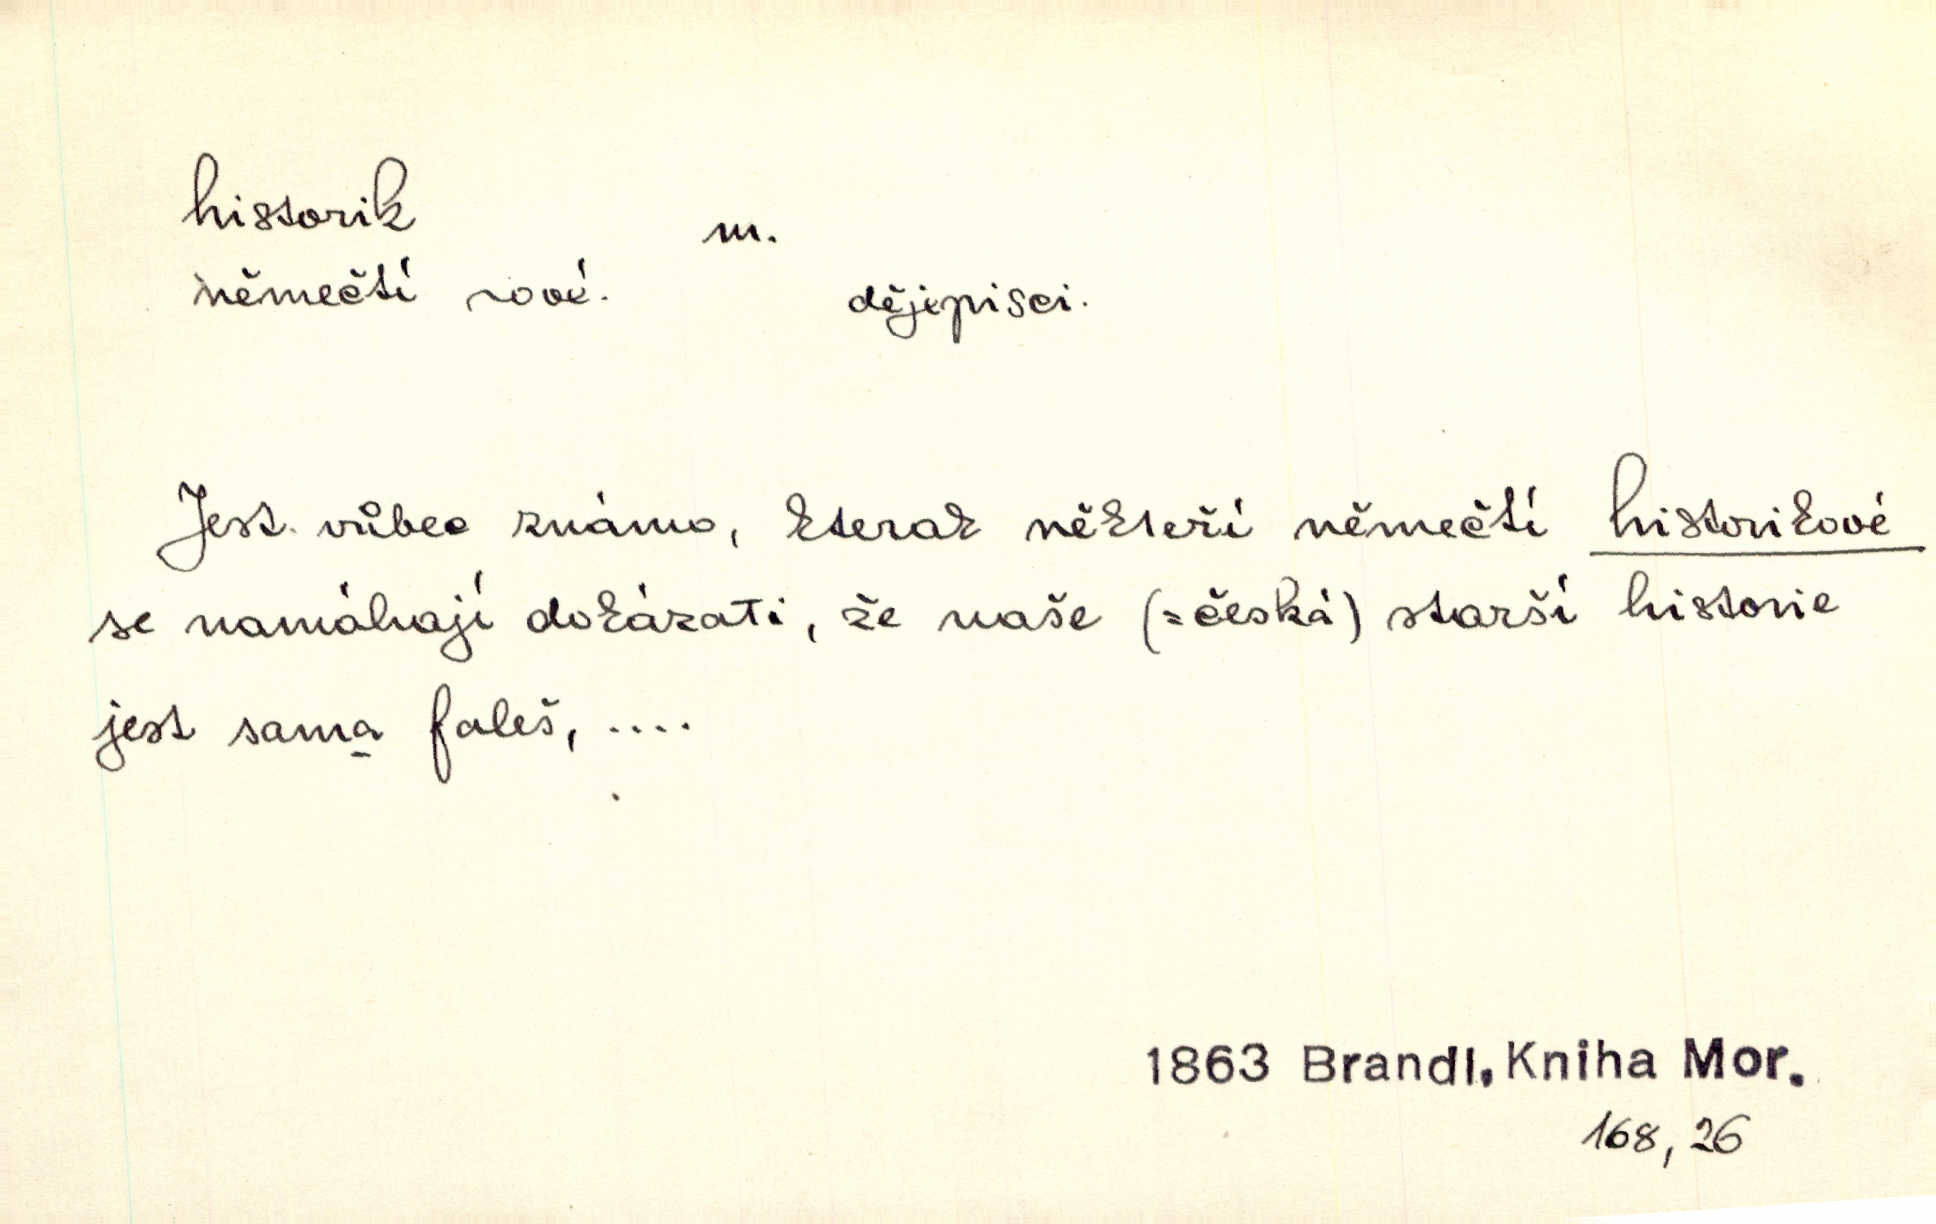 historik m.
němečtí ~ové. dějepisci.
Jest vůbec známo, kterak někteří němečtí historikové
se namáhají dokázati, že naše (=česká) starší historie
jest sama faleš, ....
1863 Brandl, Kniha Mor.
168, 26